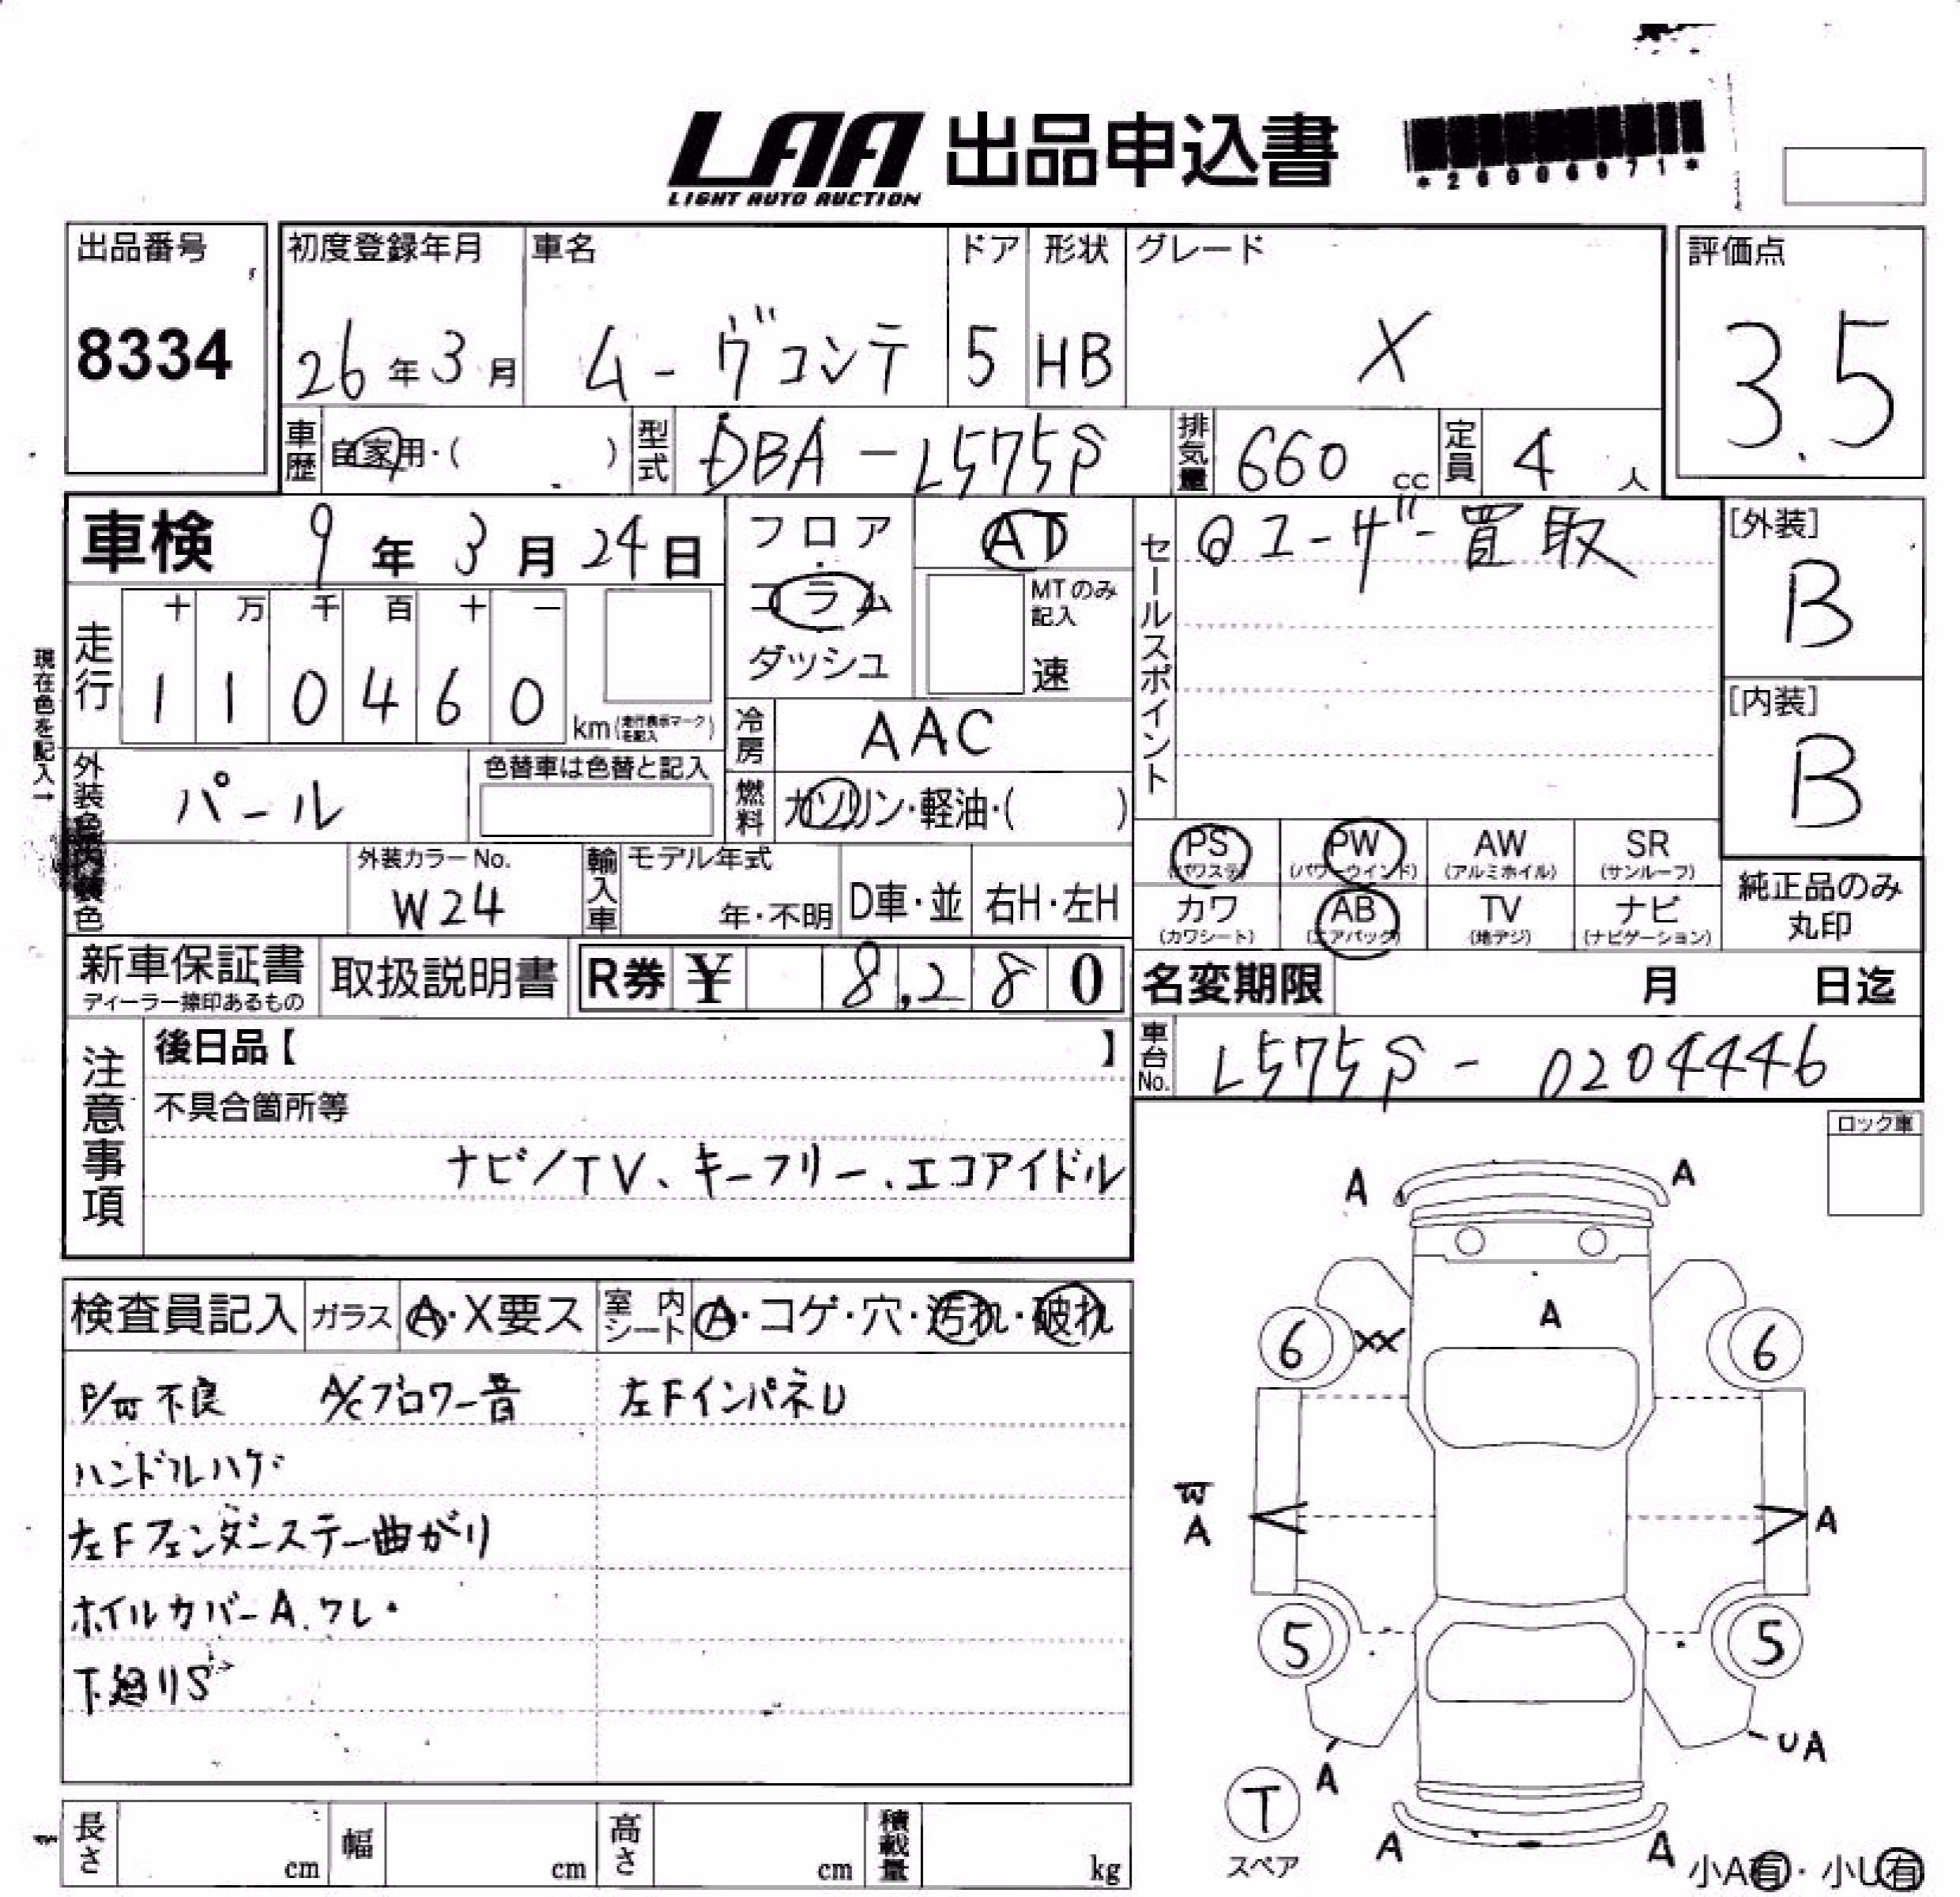 LAA 出品申込書
LIGHT AUTO AUCTION
*26006071*
出品番号
8334
初度登録年月
26年3月
車名
ムーヴコンテ
ドア
5
形状
HB
グレード
X
評価点
3.5
車歴
自家用・( )
型式
DBA-L575S
排気量
660 cc
定員
4人
車検 9年3月24日
現在色を記入→
走行
十 万 千 百 十 一
1 1 0 4 6 0
km(走行表示マークを記入)
フロア
・
コラム
・
ダッシュ
AT
MTのみ
記入
速
冷房
AAC
燃料
ガソリン・軽油・( )
セールスポイント
◎ユーザー買取
[外装]
B
[内装]
B
外装色
パール
色替車は色替と記入
内装色
外装カラーNo.
W24
輸入車
モデル年式
年・不明
D車・並
右H・左H
PS
(パワステ)
PW
(パワーウインド)
AW
(アルミホイル)
SR
(サンルーフ)
カワ
(カワシート)
AB
(エアバッグ)
TV
(地デジ)
ナビ
(ナビゲーション)
純正品のみ
丸印
新車保証書
ディーラー捺印あるもの
取扱説明書
R券 ¥ 8,280
名変期限 月 日迄
車台No.
L575S-0204446
注意事項
後日品【 】
不具合箇所等
ナビ/TV、キーフリー、エコアイドル
ロック車
検査員記入
ガラス
A・X要ス
室内シート
A・コゲ・穴・汚れ・破れ
P/W不良 A/Cブロワー音 左FインパネU
ハンドルハゲ
左Fフェンダーステー曲がり
ホイルカバーA.ワレ・
下廻りS
A A
A
6 XX 6
W
A
A
5 5
A
UA
T
スペア
A A
小A有・小U有
長さ cm
幅 cm
高さ cm
積載量 kg